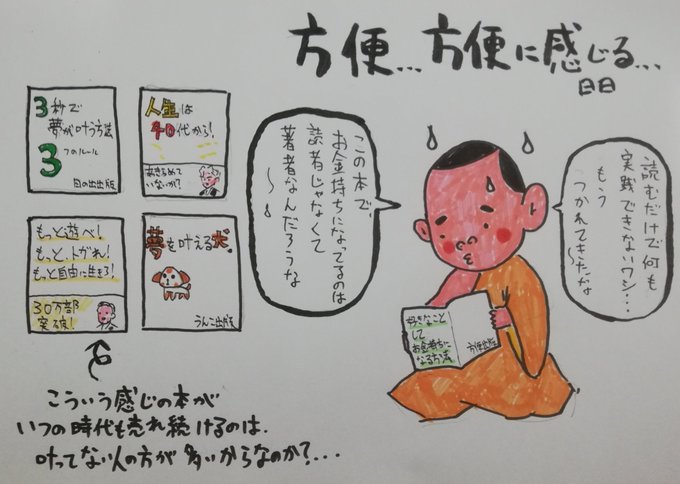 方便…方便に感じる…
日日
3秒で
夢が叶う方法
3つのルール
日の出出版
人生は
40代から!
あきらめて
いないか?
もっと遊べ!
もっと、トガれ!
もっと自由に生きろ!
30万部
突破!
夢を叶える犬。
うんこ出版
読むだけで何も
実践できないワシ…
もう
つかれてきたな
この本で、
お金持ちになってるのは
読者じゃなくて
著者なんだろうな
〜。
好きなこと
して
お金持ちに
なる方法
方便出版
こういう感じの本が
いつの時代も売れ続けるのは、
叶ってない人の方が多いからなのか?…